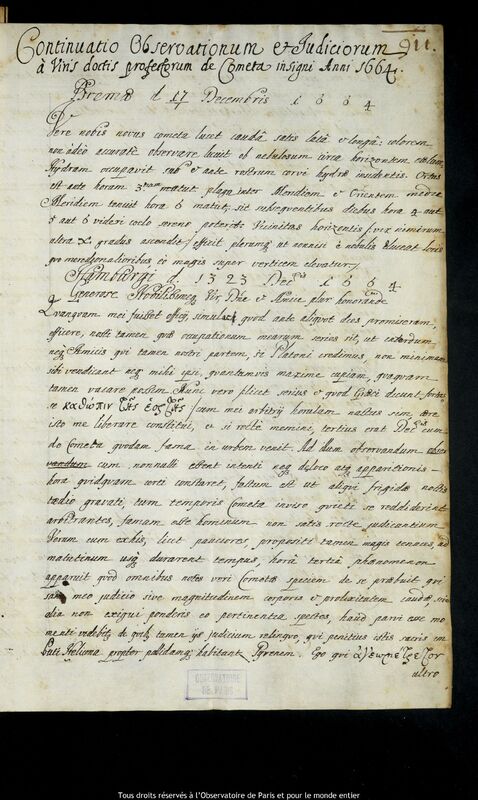 Continuatio Observationum et Judiciorum 911.
à Viris doctis profectorum de Cometa insigni Anni 1664.
Bremæ d 17 Decembris 1664
Vere nobis novus cometa lucet caudâ satis latâ et longâ: colorem
non adeo accuratè observare licuit ob nebulosum circa horizontem cœlum.
Hydram occupavit sub et ante rostrum corvi hydræ insidentis. Ortus
est ante horam 3 matut plagâ inter Meridiem et Orientem mediâ
Meridiem tenuit hora 6 matut, sic subsequentibus diebus hora 4 aut
5 aut 6 videri cœlo sereno poterit. Vicinitas horizontis (vix nimirum
ultra X gradus ascendit) efficit plerumq ut connisi è nobulis eluceat locis
pro meridionalioribus eò magis super verticem elevatur.
Hamburgi d. 13 23 Dec 1664
Generose Nobilissimeq Vir, Dne et Amice plur honorande
Quanquam mei fuisset officij, simulac quod ante aliquot dies promiseram,
efficere, nosti tamen quæ occupationum mearum series sit, ut interdum
neq Amicis qui tamen nostri partem, si Platoni credimus, non minimam
sibi vendicant neq mihi ipsi, quantumvis maxime cupiam, quaquam
tamen vacare possim. Nunc vero scilicet serius et quod Græci dicunt
se κατόπιν τῆς ἑορτῆς (cum mei arbitrij horulam nactus sem, ære
isto me liberare constitui, et si rectè memini, tertius erat Dec cum
de Cometa quodam fama in urbem venit. Ad illum observandum
cum nonnulli essent intenti neq de loco atq apparitionis
hora quidquam certi constaret, factum est ut aliqui frigidæ noctis
tædio gravati, tum temporis Cometa inviso quieti se reddiderint
arbitrantes, famam esse hominum non satis rectè judicantium
Verum cum ex his, licet pauciores, propositi tamen magis tenaces, ad
matutinum usq durarent tempus, horâ tertiâ phænomenon
apparuit quod omnibus notis veri Cometæ speciem de se præbuit qui
sanè meo judicio sive magnitudinem corporis et prolixitatem caudæ, sive
alia non exigui ponderis eo pertinentia spectes, haud parvi esse mo
menti videbitur, de quib tamen ijs judicium relinquo, qui penitius istis sacris im
buti Helicona propter pallidamq habitant Pyrenem. Ego qui ἀγεωμέτρητον
ultro
OBSERVATOIRE DE PARIS
Tous droits réservés à l'Observatoire de Paris et pour le monde entier